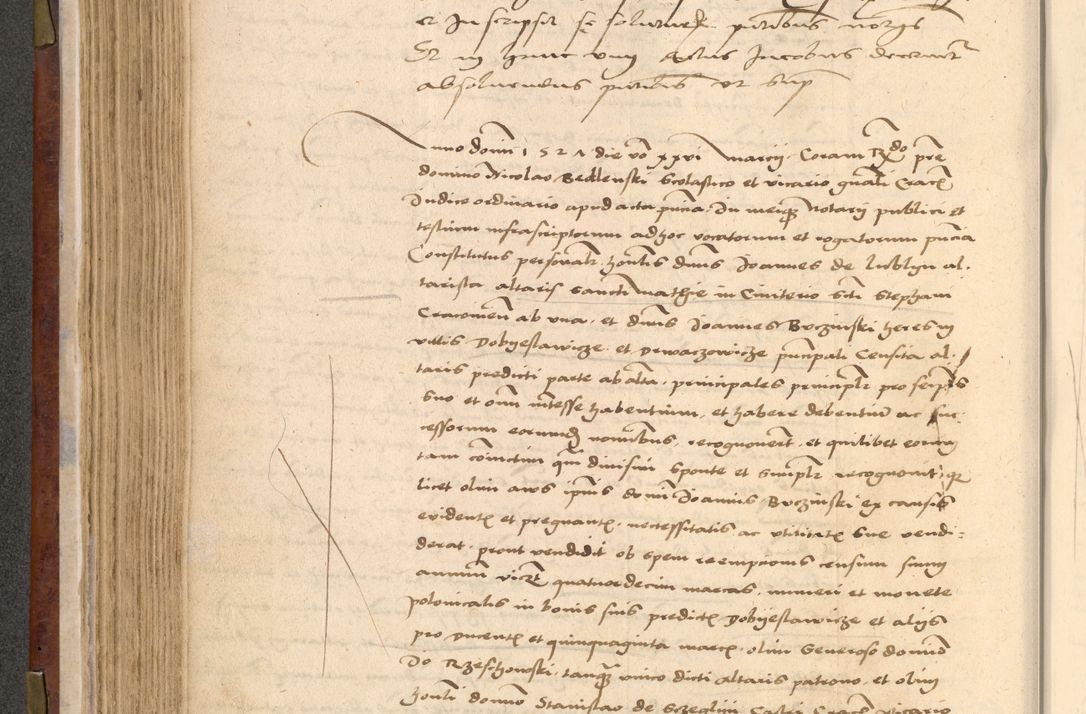 et Inscripsit se soluturum
Et in hunc unum Actus Jacobus decernit
absolvendus ut sup
Anno domi 1521 die vo xxvi marcij Coram Rndo pre
domino Nicolao Bedlenski Scolastico et vicario gnali Crac
Iudice ordinario apud acta pncia In meiqz Notarij publici et
testium infrascriptorum ad hoc vocatorum et rogatorum pncia
Constitutus personalr honlis dnus Joannes de lublyn al
tarista altaris sancti mathie in Cimiterio scti Stephani
Cracovien ab una et dnus Joannes Buczinski heres in
villis Dobyeslawicze et Drwaczowicze pncipali Censita al
taris predicti parte ab alta principales principalr pro seipsis
suo et omn intesse habentium et habere debentium ac suc
cessorum eorundz nominibus recognoverut et quilibet eorum
tam coniunctim qm divisim sponte et simplr recognovit qz
licet olim avus ipius domi Joannis Buczinski ex causis
evidentz et pregnantz necessitatis ac utilitatz sue vendi
derat prout vendidit ob spem reempcionis censum
annuum quatuordecim marcas numeri et monete
polonicalis in bonis suis predictz Dobyeslawicze et alijs
pro ducentz et quinquaginta marcz olim Generoso domino
Jo Rzeschowski tanqz unico dicti altaris patrono et olim
honli domino Stanislao de Crac vicario